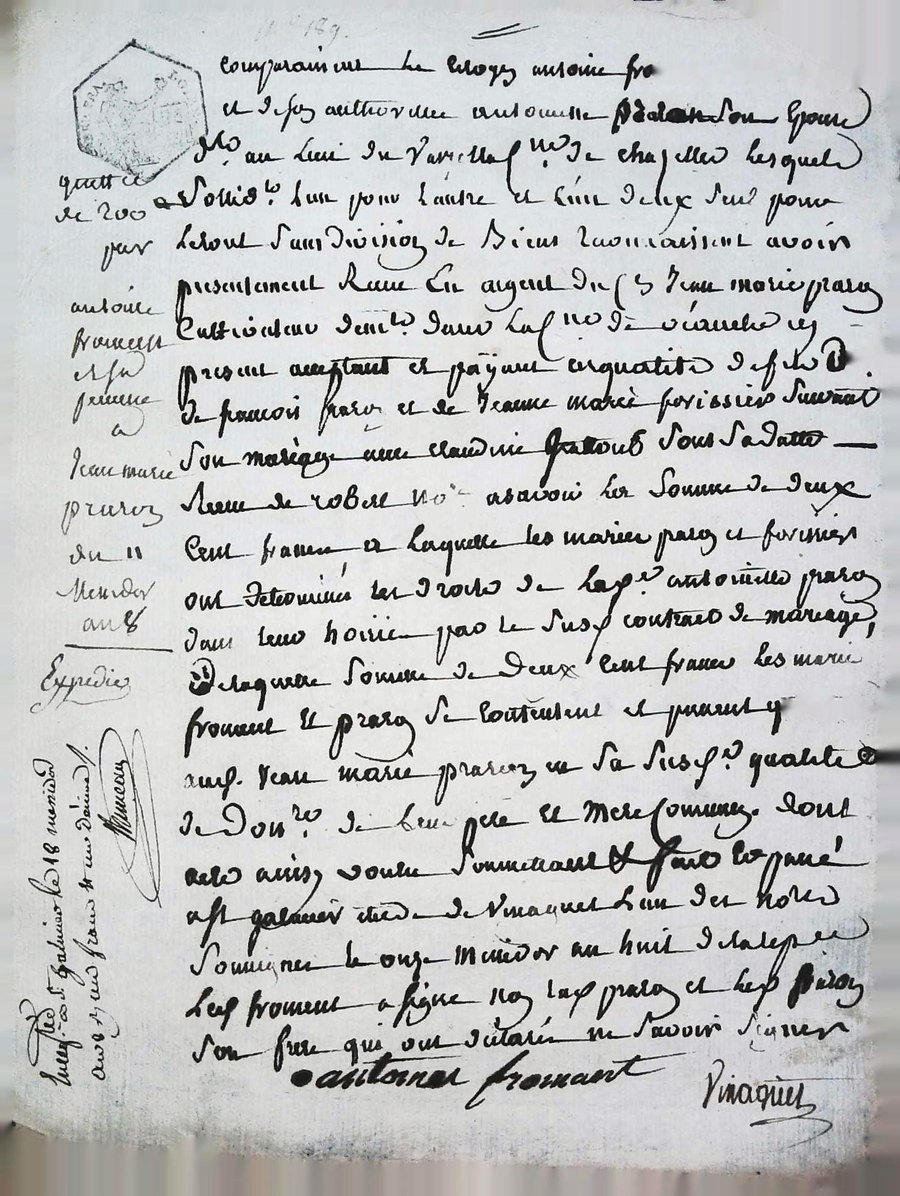 comparaissent le citoyen antoine fro
et de son authorite antoinette son Epouse
au lieu du de chazelles lesquels
Solid.t lun pour lautre et lun deux seul pour
letout Sans division de Biens reconnaissent avoir
presentement Recu En argent du Jean marie prazon
Cultivateur dem.t dans la de icy
present acceptant et payant enqualité de
de francois prazon et de Jeanne marie forissier Suivant
Son mariage avec claudine Sous Sa datte
Recue de robert no.re asavoir la Somme de deux
Cent francs et laquelle les mariés prazon et forissier
ont determiné les droits de antoinette prazon
dans leur hoirie par le Susd contract de mariage,
Delaquelle Somme de Deux Cent francs les mariés
froment Et prazon Se contentent et
aud. Jean marie prazon en Sa Susd.e qualité
de Don.re de leur père Et Mere Communs. dont
acte ainsy voulu Soumettant & fait et passé
a St galmier etude de Vinaquet Lun des notes
Soussignes le onze Messidor an huit delarepee
Led froment a signe non lad prazon et led prazon
Son frere qui ont déclaré ne Savoir Signer
antoines fromant
Vinaquet
quittce
de 200
par
antoine
froment
et sa
femme
a
Jean marie
prazon
du 11
Messidor
an 8
Expedie
a St galmier le 18 messidor
an 8 un franc